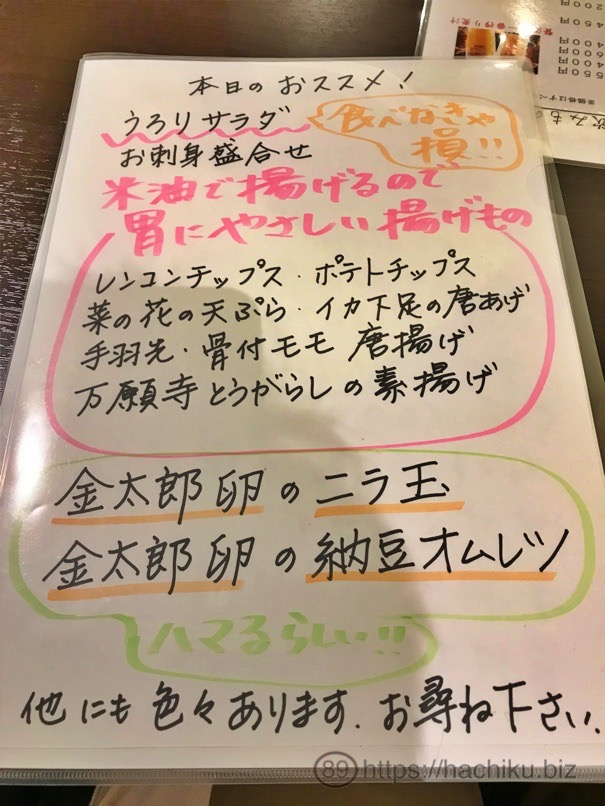 本日のおススメ!
うろりサラダ
食べなきゃ
損!!
お刺身盛合せ
米油で揚げるので
胃にやさしい揚げもの
レンコンチップス・ポテトチップス
菜の花の天ぷら・イカ下足の唐あげ
手羽先・骨付モモ 唐揚げ
万願寺とうがらしの素揚げ
金太郎卵のニラ玉
金太郎卵の納豆オムレツ
ハマるらしい!!
他にも色々あります。お尋ね下さい。
飲みもの
89 https://hachiku.biz